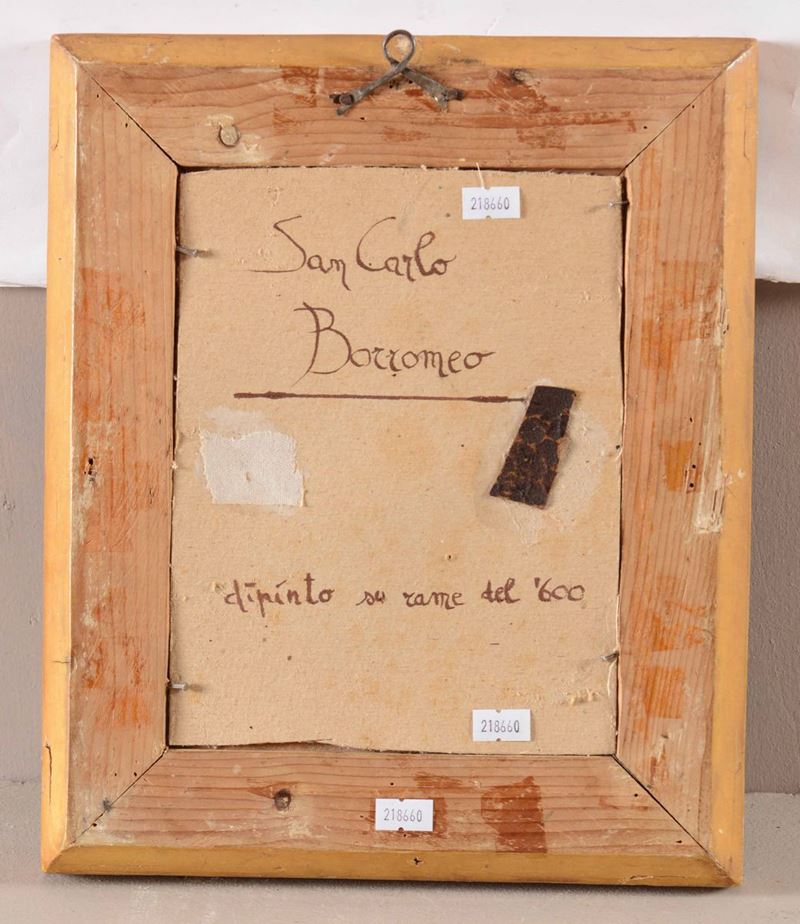 218660
San Carlo
Borromeo
dipinto su rame del '600
218660
218660